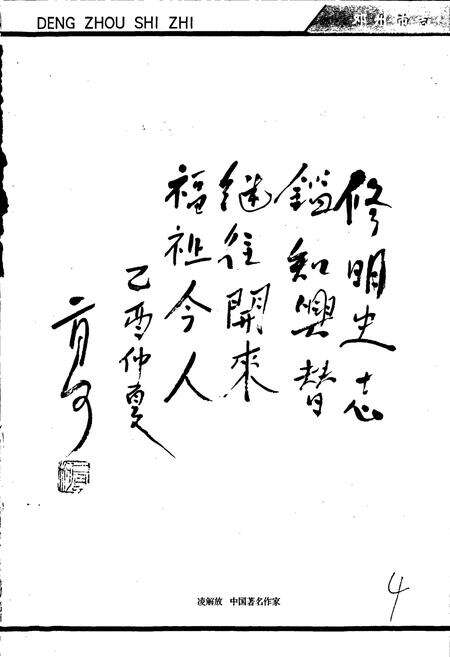 DENG ZHOU SHI ZHI
邓州市志
修明史志
鑑知興替
继往開來
福祉今人
乙酉仲夏
二月河
凌解放 中国著名作家
4